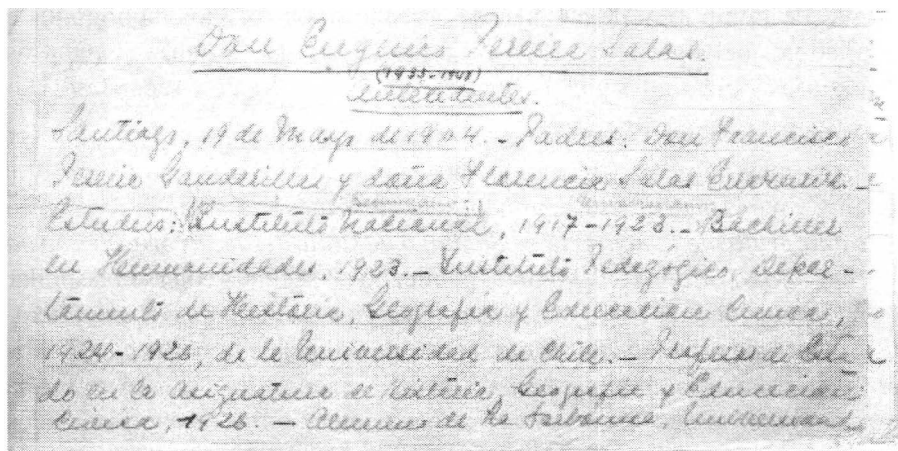 Don Eugenio Pereira Salas.
(1933-1948)
Antecedentes.
Santiago, 19 de Mayo de 1904. - Padres: Don Francisco
Pereira Gandarillas y doña Florencia Salas Errázuriz. -
Estudios: Instituto Nacional, 1917-1923. - Bachiller
en Humanidades, 1923. - Instituto Pedagógico, Depar-
tamento de Historia, Geografía y Educación Cívica,
1924-1926, de la Universidad de Chile. - Profesor de Esta
do en la asignatura de Historia, Geografía y Educación
Cívica, 1926. - Alumno de La Sorbonne, Universidad